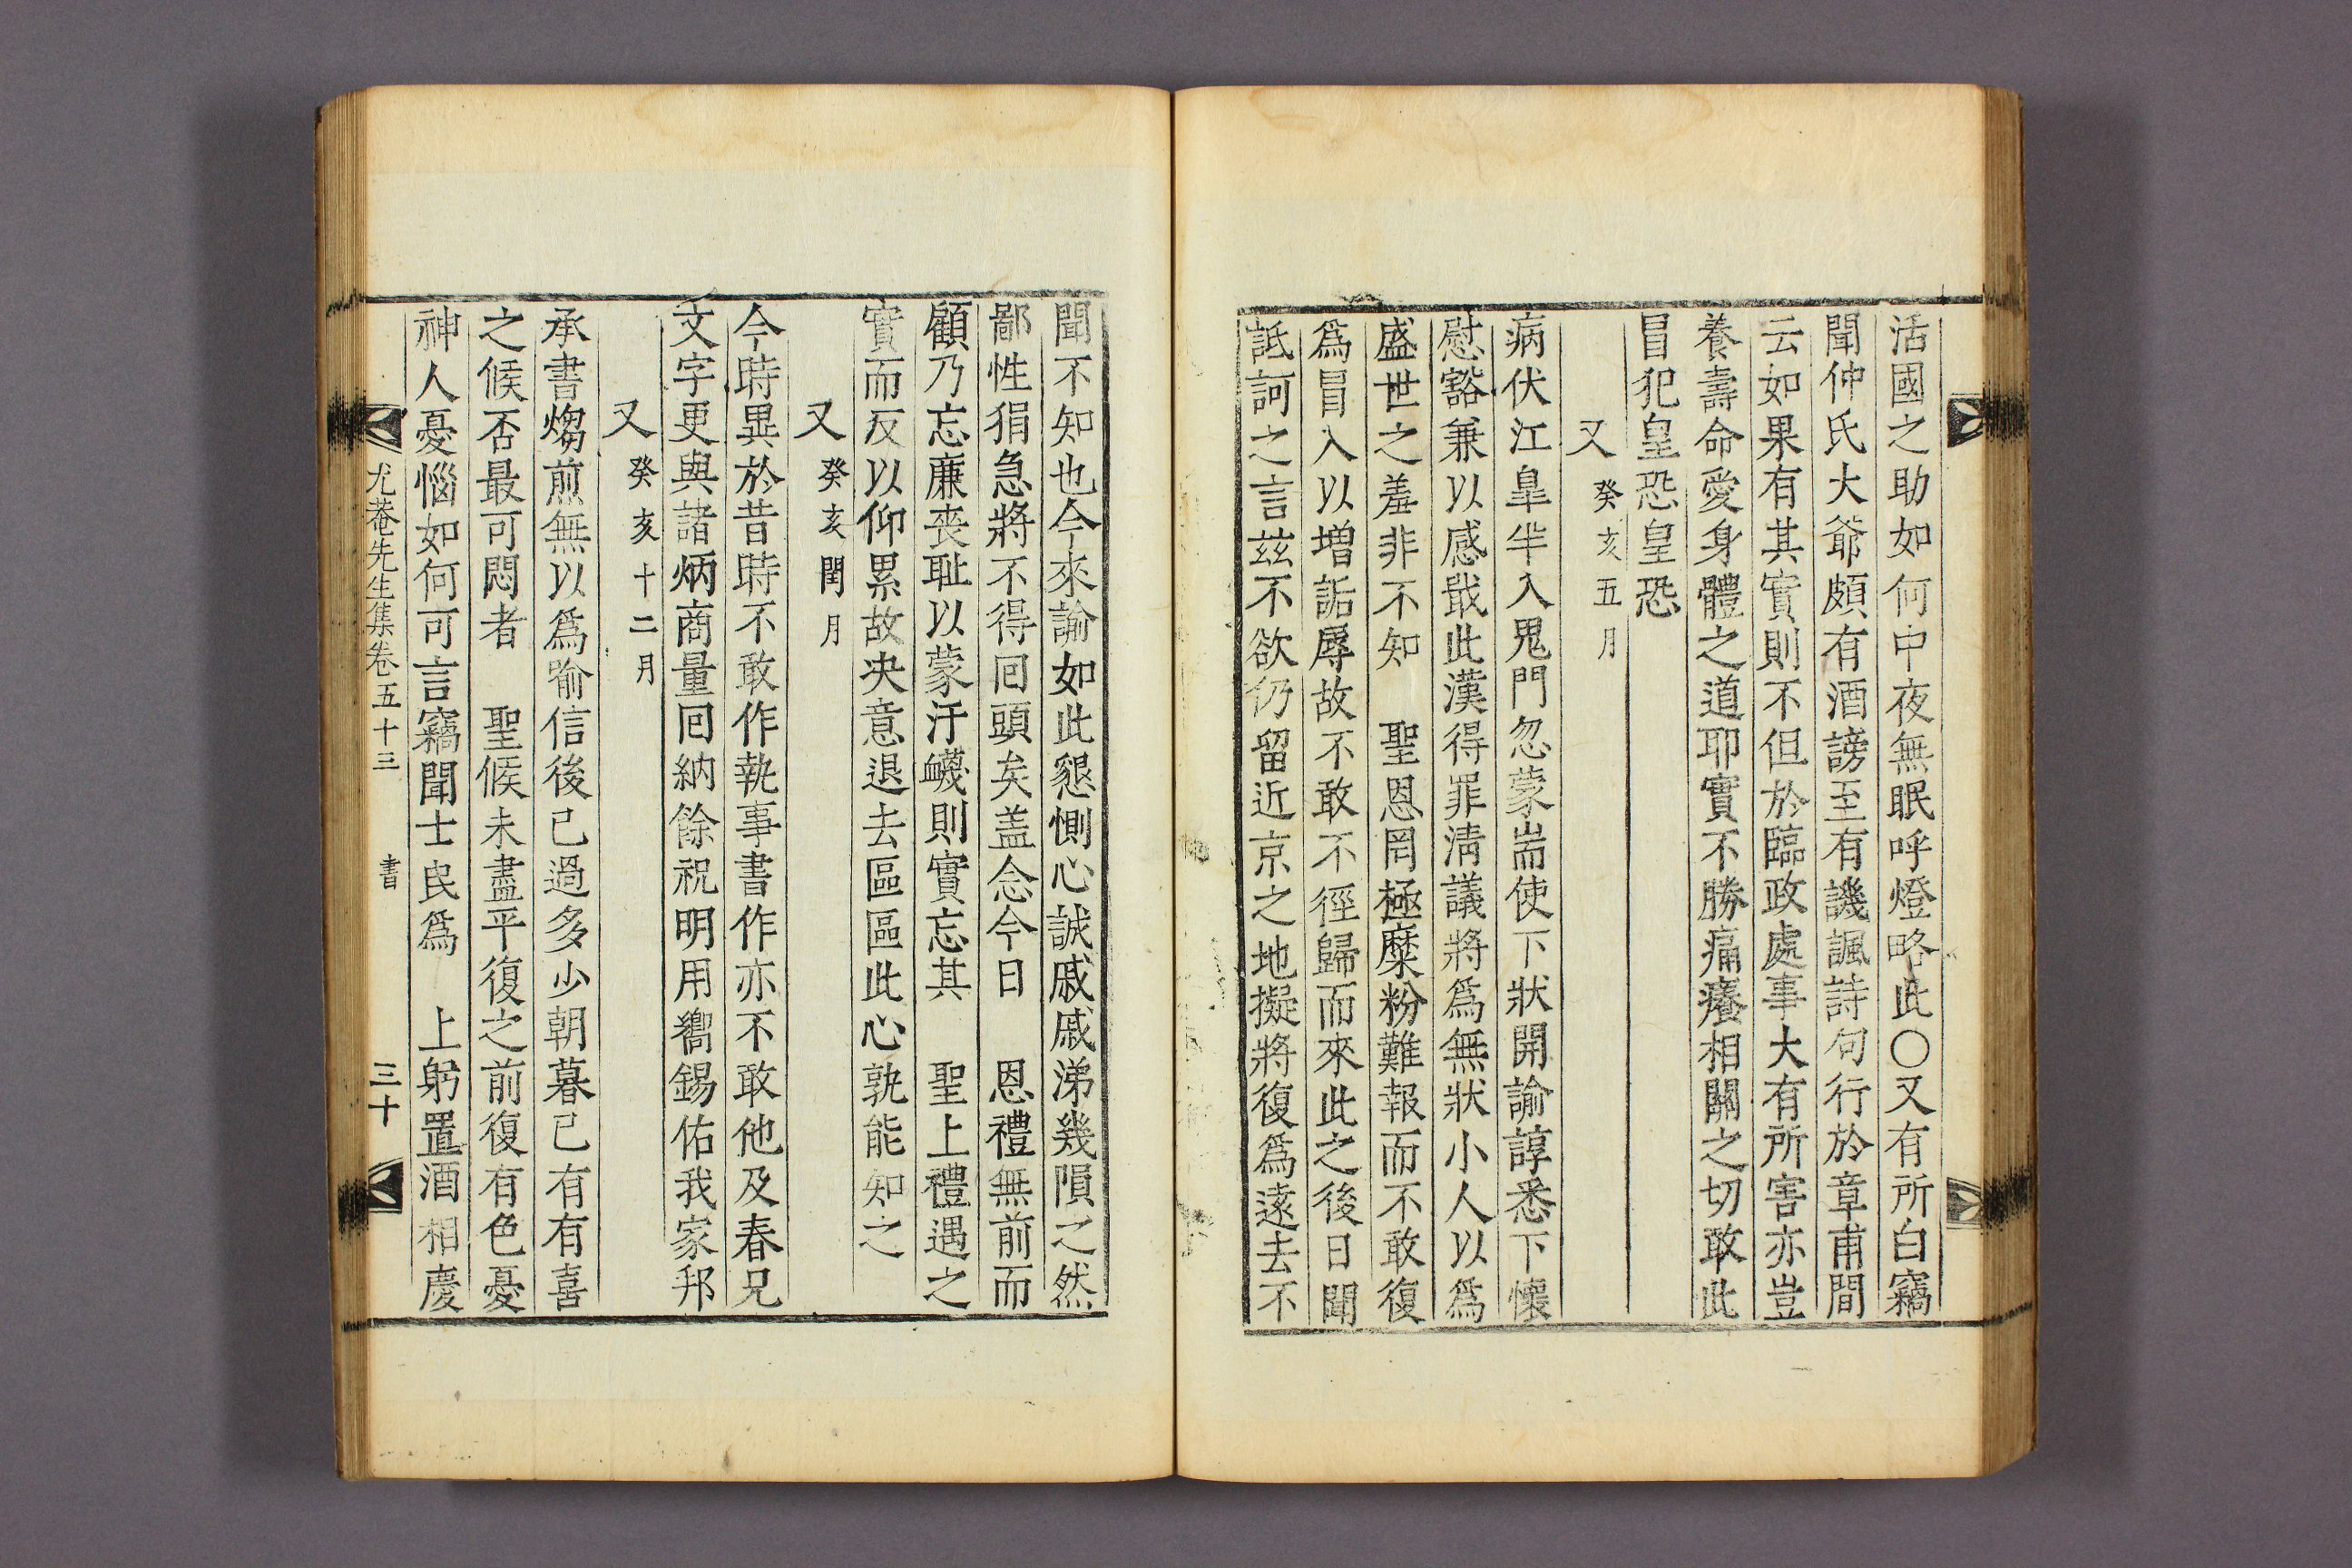 活國之助如何中夜無眠呼燈略此○又有所白竊
聞仲氏大爺頗有酒謗至有譏諷詩句行於章甫間
云如果有其實則不但於臨政處事大有所害亦豈
養壽命愛身體之道耶實不勝痛癢相關之切敢此
冒犯皇恐皇恐
又 癸亥五月
病伏江臯半入鬼門忽蒙耑使下狀開諭諄悉下懷
慰豁兼以感戢此漢得罪淸議將爲無狀小人以爲
盛世之羞非不知 聖恩罔極糜粉難報而不敢復
爲冒入以增詬辱故不敢不徑歸而來此之後日聞
詆訶之言玆不欲仍留近京之地擬將復爲遠去不
聞不知也今來諭如此懇惻心誠戚戚涕幾隕之然
鄙性狷急將不得回頭矣盖念今日 恩禮無前而
顧乃忘廉喪耻以蒙汙衊則實忘其 聖上禮遇之
實而反以仰累故决意退去區區此心孰能知之
又 癸亥閏月
今時異於昔時不敢作執事書作亦不敢他及春兄
文字更與諸炳商量回納餘祝明用嚮錫佑我家邦
又 癸亥十二月
承書煼煎無以爲喩信後已過多少朝暮已有有喜
之候否最可悶者 聖候未盡平復之前復有色憂
神人憂惱如何可言竊聞士民爲 上躬置酒相慶
尤菴先生集卷五十三 書 三十